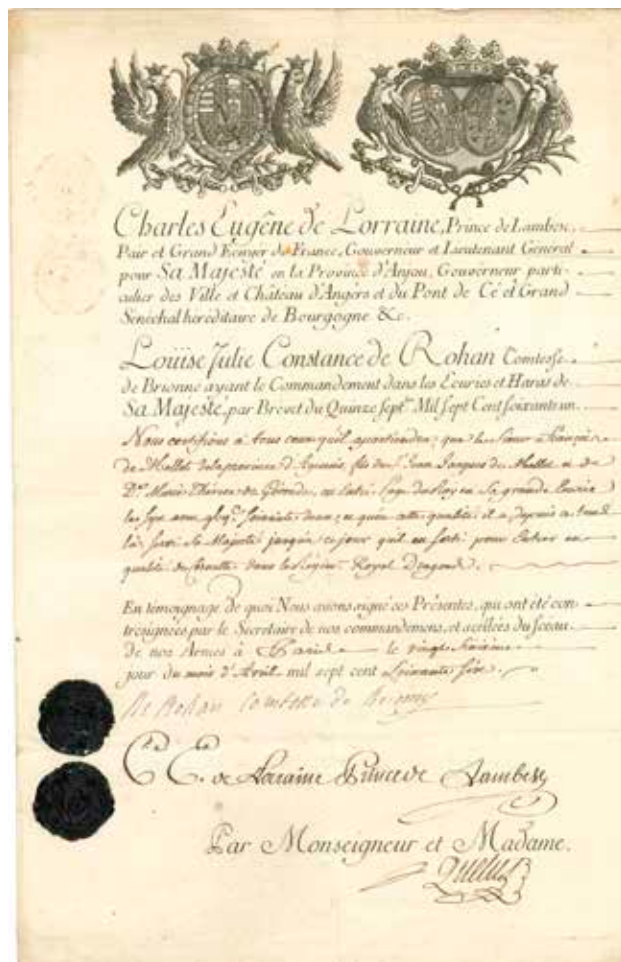 Charles Eugêne de Lorraine, Prince de Lambesc,
Pair et Grand Ecuyer de France, Gouverneur et Lieutenant Général
pour Sa Majesté en la Province d'Anjou, Gouverneur parti-
culier des Ville et Château d'Angers et du Pont de Cé et Grand
Sénéchal héréditaire de Bourgogne &c.
Loüise Julie Constance de Rohan Comtesse
de Brionne ayant le Commandement dans les Ecuries et Haras de
Sa Majesté, par Brevet du Quinze sept. Mil Sept Cent soixante un.
Nous certifions à tous ceux qu'il appartiendra, que le Sieur François
de Mallet de la province d' fils de Sr. Jean Jacques de Mallet et de
De. Marie Thérèse de est entré Page du Roy en Sa grande Ecurie
le soixante deux, et qu'en cette qualité il a, depuis ce
là servi Sa Majesté jusqu'à ce jour qu'il en sort pour entrer en
qualité de dans le Régim. Royal Dragons.
En témoignage de quoi Nous avons signé ces Présentes, qui ont été con-
tresignées par le Secretaire de nos commandemens, et scellées du sceau
de nos Armes à Paris le vingt
jour du mois d'Avril mil sept cent soixante
De Rohan Comtesse de Brionne
Ch. E. de Loraine Prince de Lambesc
Par Monseigneur et Madame.